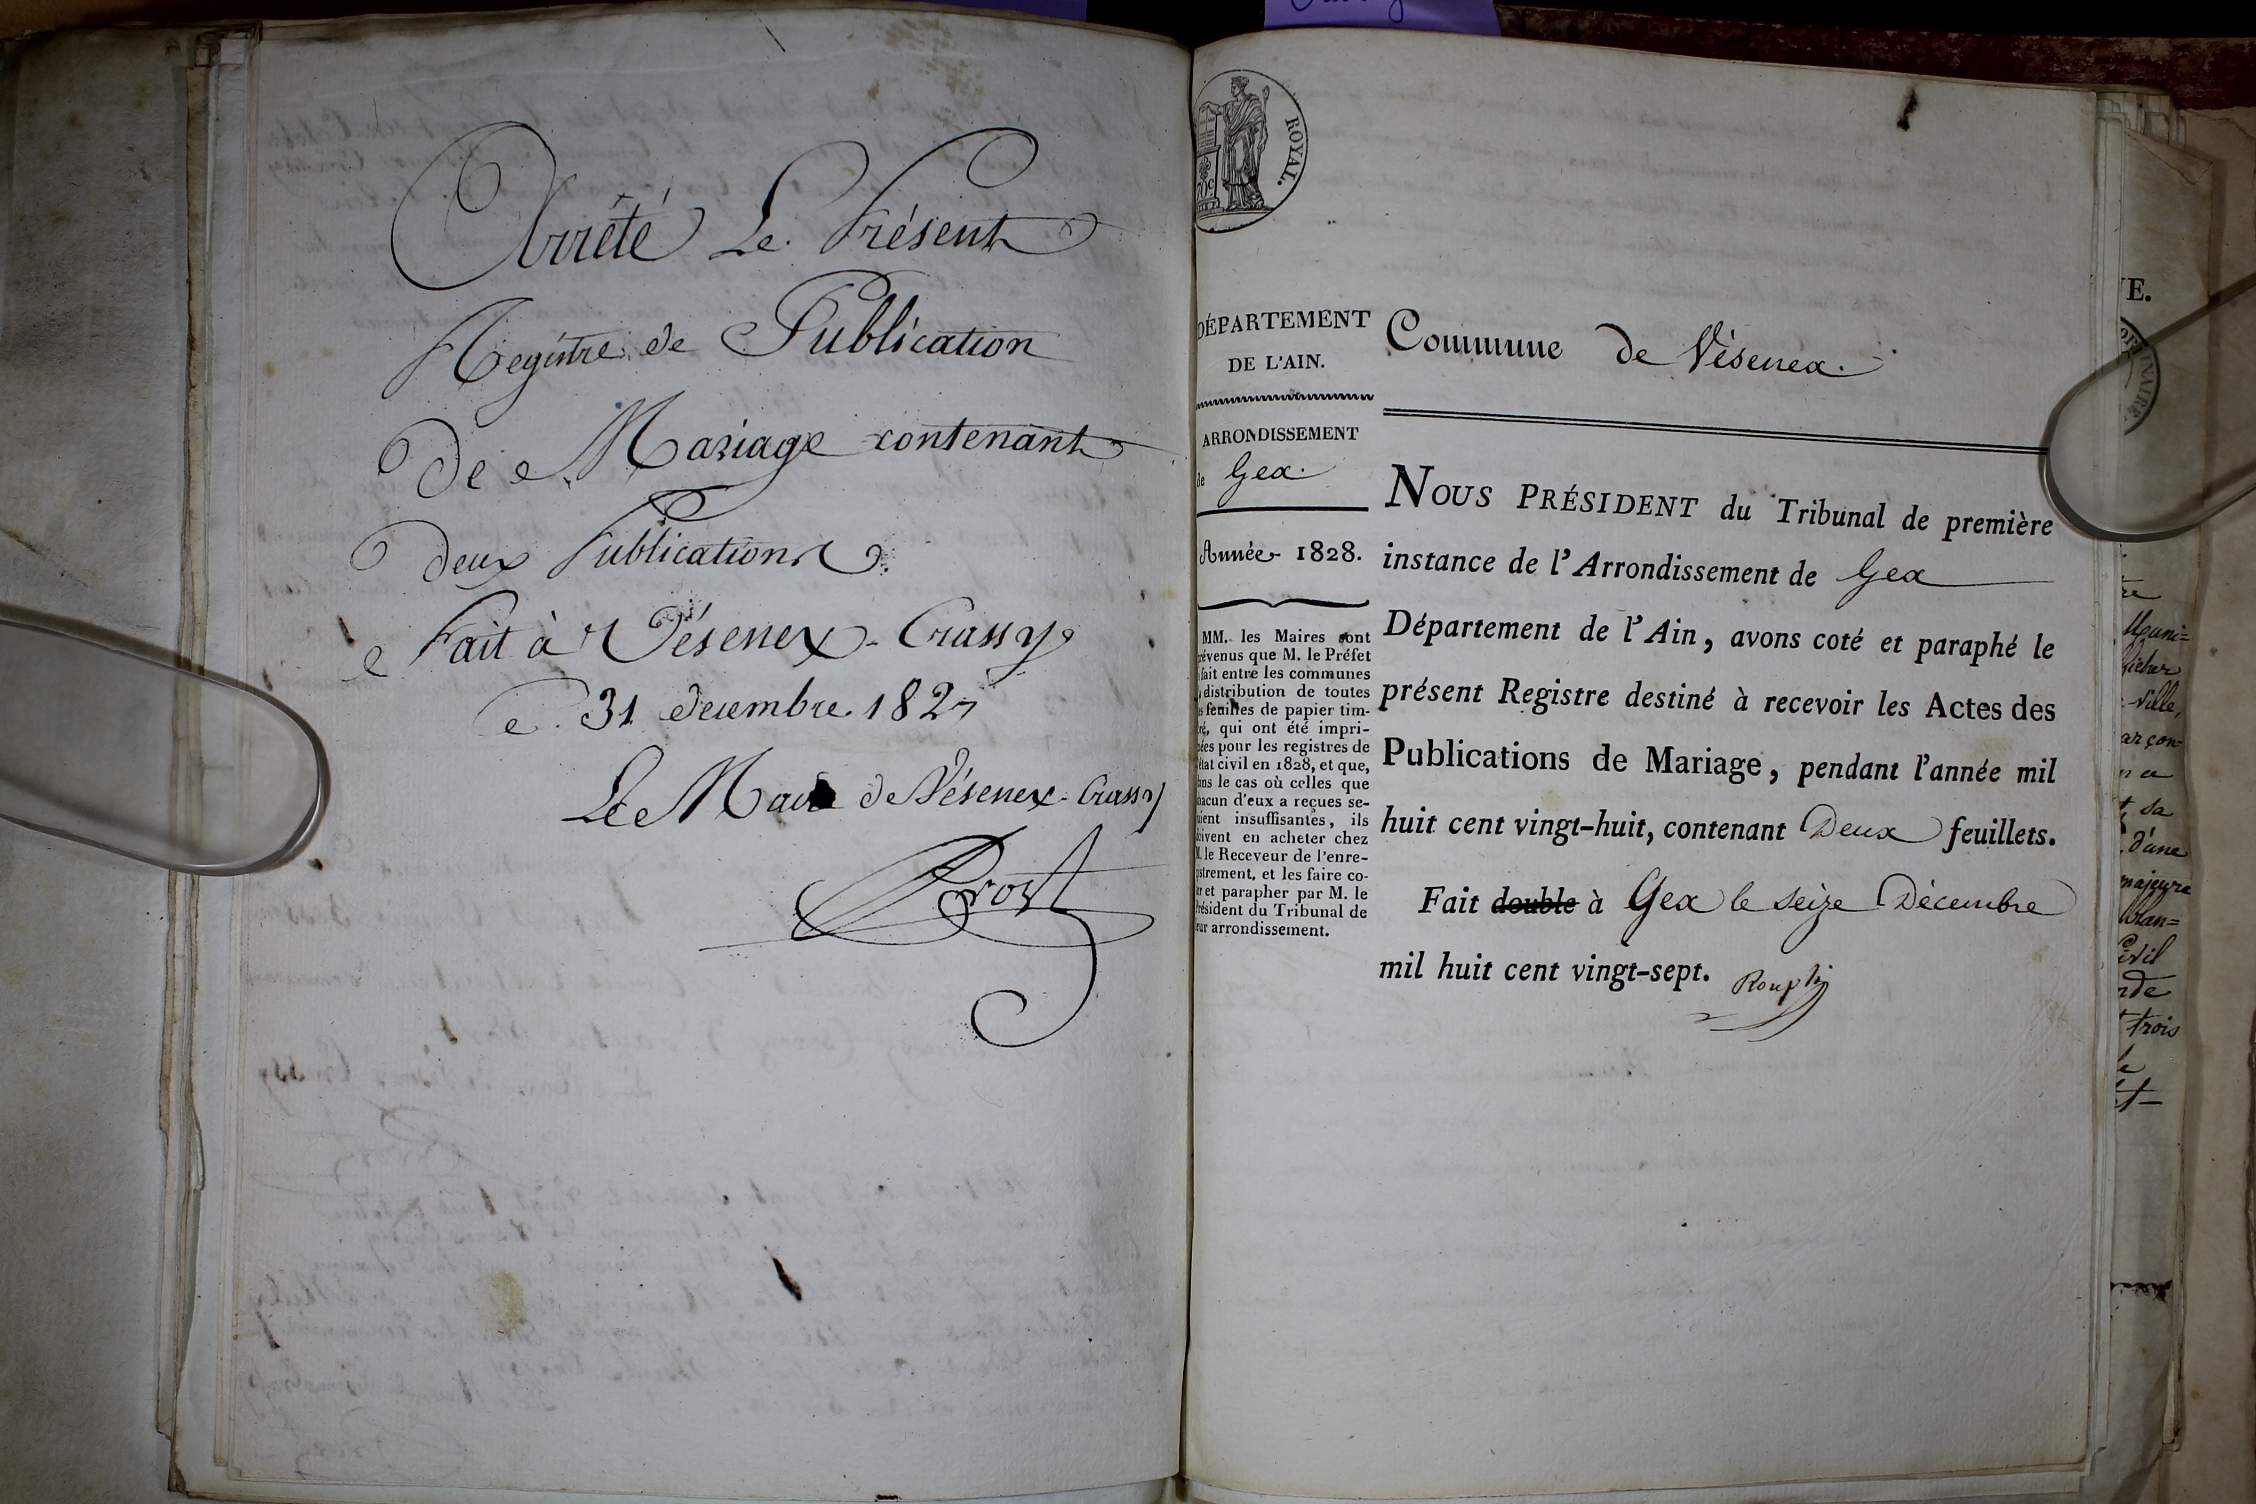 Arrêté Le Présent
Registre de Publication
De Mariage contenant
deux Publications
Fait à Vésenex-Crassy
Le 31 décembre 1827
Le Maire de Vésenex-Crassy
Prost
ROYAL.
DÉPARTEMENT
DE L'AIN.
ARRONDISSEMENT
de Gex.
Année 1828.
MM. les Maires sont
prévenus que M. le Préfet
fait entre les communes
distribution de toutes
feuilles de papier tim-
qui ont été impri-
pour les registres de
état civil en 1828, et que,
le cas où celles que
d'eux a reçues se-
insuffisantes, ils
en acheter chez
M. le Receveur de l'enre-
et les faire co-
et parapher par M. le
Président du Tribunal de
arrondissement.
Commune de Vésenex.
NOUS PRÉSIDENT du Tribunal de première
instance de l'Arrondissement de Gex
Département de l'Ain, avons coté et paraphé le
présent Registre destiné à recevoir les Actes des
Publications de Mariage, pendant l'année mil
huit cent vingt-huit, contenant Deux feuillets.
Fait double à Gex le seize Décembre
mil huit cent vingt-sept.
VE.
Muni=
ville,
arçon=
sa
d'une
majeure
Civil
trois